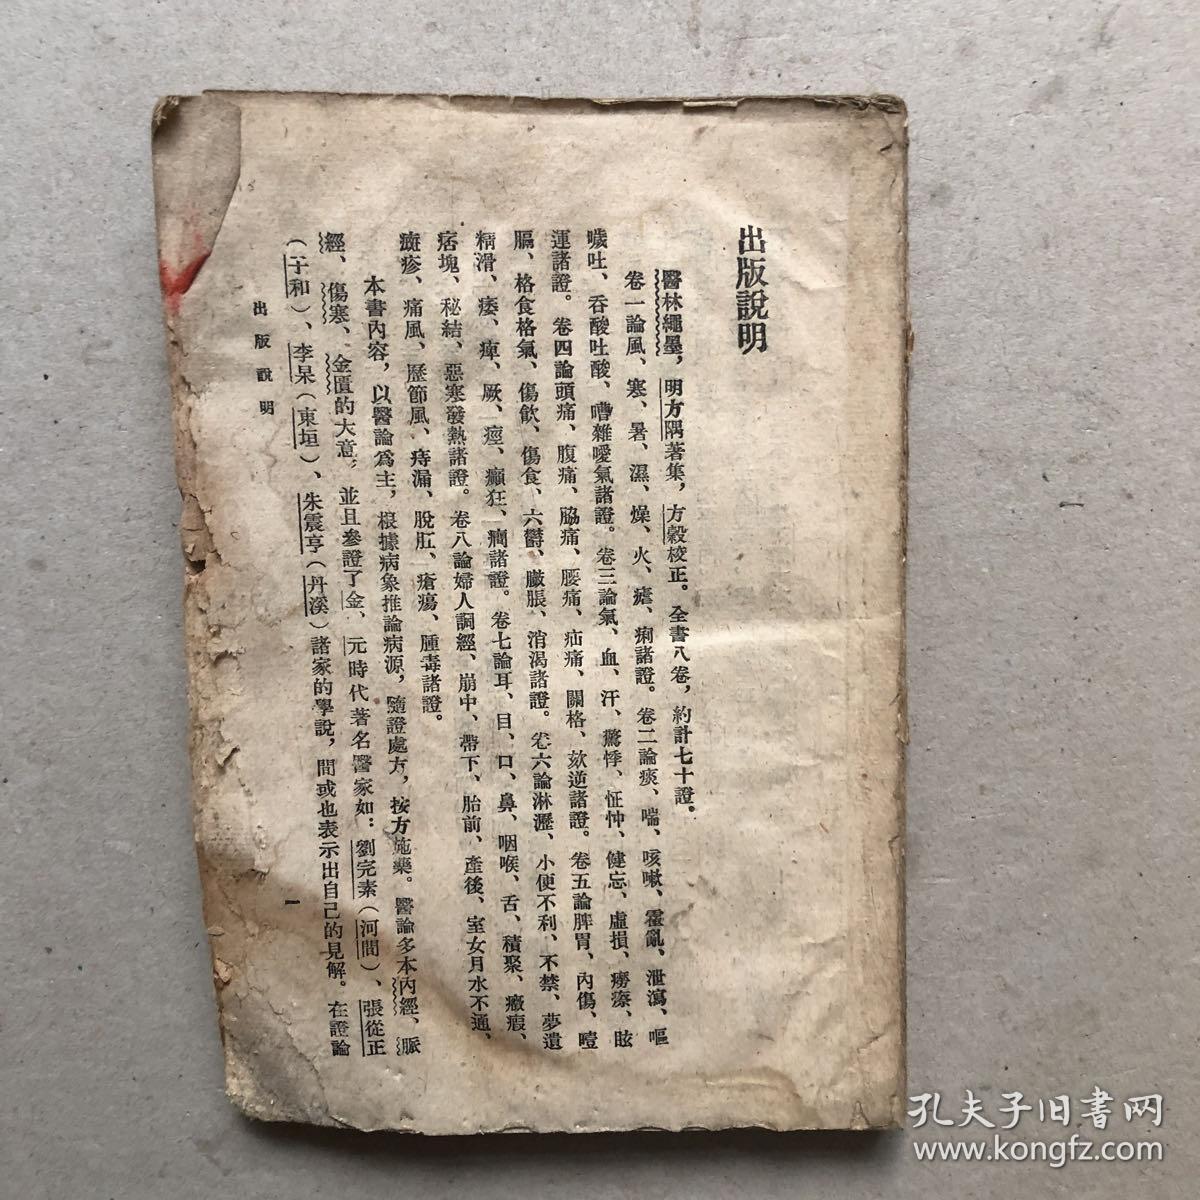 出版說明
醫林繩墨，明方隅著集，方穀校正。全書八卷，約計七十證。
卷一論風、寒、暑、濕、燥、火、瘧、痢諸證。卷二論痰、喘、咳嗽、霍亂、泄瀉、嘔
噦吐、吞酸吐酸、嘈雜噯氣諸證。卷三論氣、血、汗、驚悸、怔忡、健忘、虛損、癆瘵、眩
運諸證。卷四論頭痛、腹痛、脇痛、腰痛、疝痛、關格、欬逆諸證。卷五論脾胃、內傷、噎
膈、格食格氣、傷飲、傷食、六鬱、臌脹、消渴諸證。卷六論淋瀝、小便不利、不禁、夢遺
精滑、痿、痺、厥、痙、癲狂、癇諸證。卷七論耳、目、口、鼻、咽喉、舌、積聚、癥瘕、
痞塊、秘結、惡寒發熱諸證。卷八論婦人調經、崩中、帶下、胎前、產後、室女月水不通、
癍疹、痛風、歷節風、痔漏、脫肛、瘡瘍、腫毒諸證。
本書內容，以醫論爲主，根據病象推論病源，隨證處方，按方施藥。醫論多本內經、脈
經、傷寒、金匱的大意，並且參證了金、元時代著名醫家如：劉完素（河間）、張從正
（子和）、李杲（東垣）、朱震亨（丹溪）諸家的學說，間或也表示出自己的見解。在證論
出版說明
一
孔夫子旧書网
www.kongfz.com